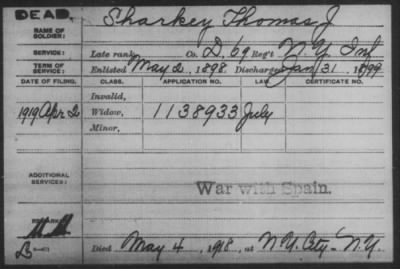 DEAD.
NAME OF SOLDIER: Sharkey Thomas J.
SERVICE: Late rank, Co. D, 69 Reg't N.Y. Inf
TERM OF SERVICE: Enlisted May 2, 1898. Discharged Jan 31, 1899
DATE OF FILING. CLASS. APPLICATION NO. LAW. CERTIFICATE NO.
Invalid,
1919 Apr 2 Widow, 1138933 July
Minor,
ADDITIONAL SERVICES:
War with Spain.
REMARKS:
Died May 4, 1918, at N.Y. City-N.Y.